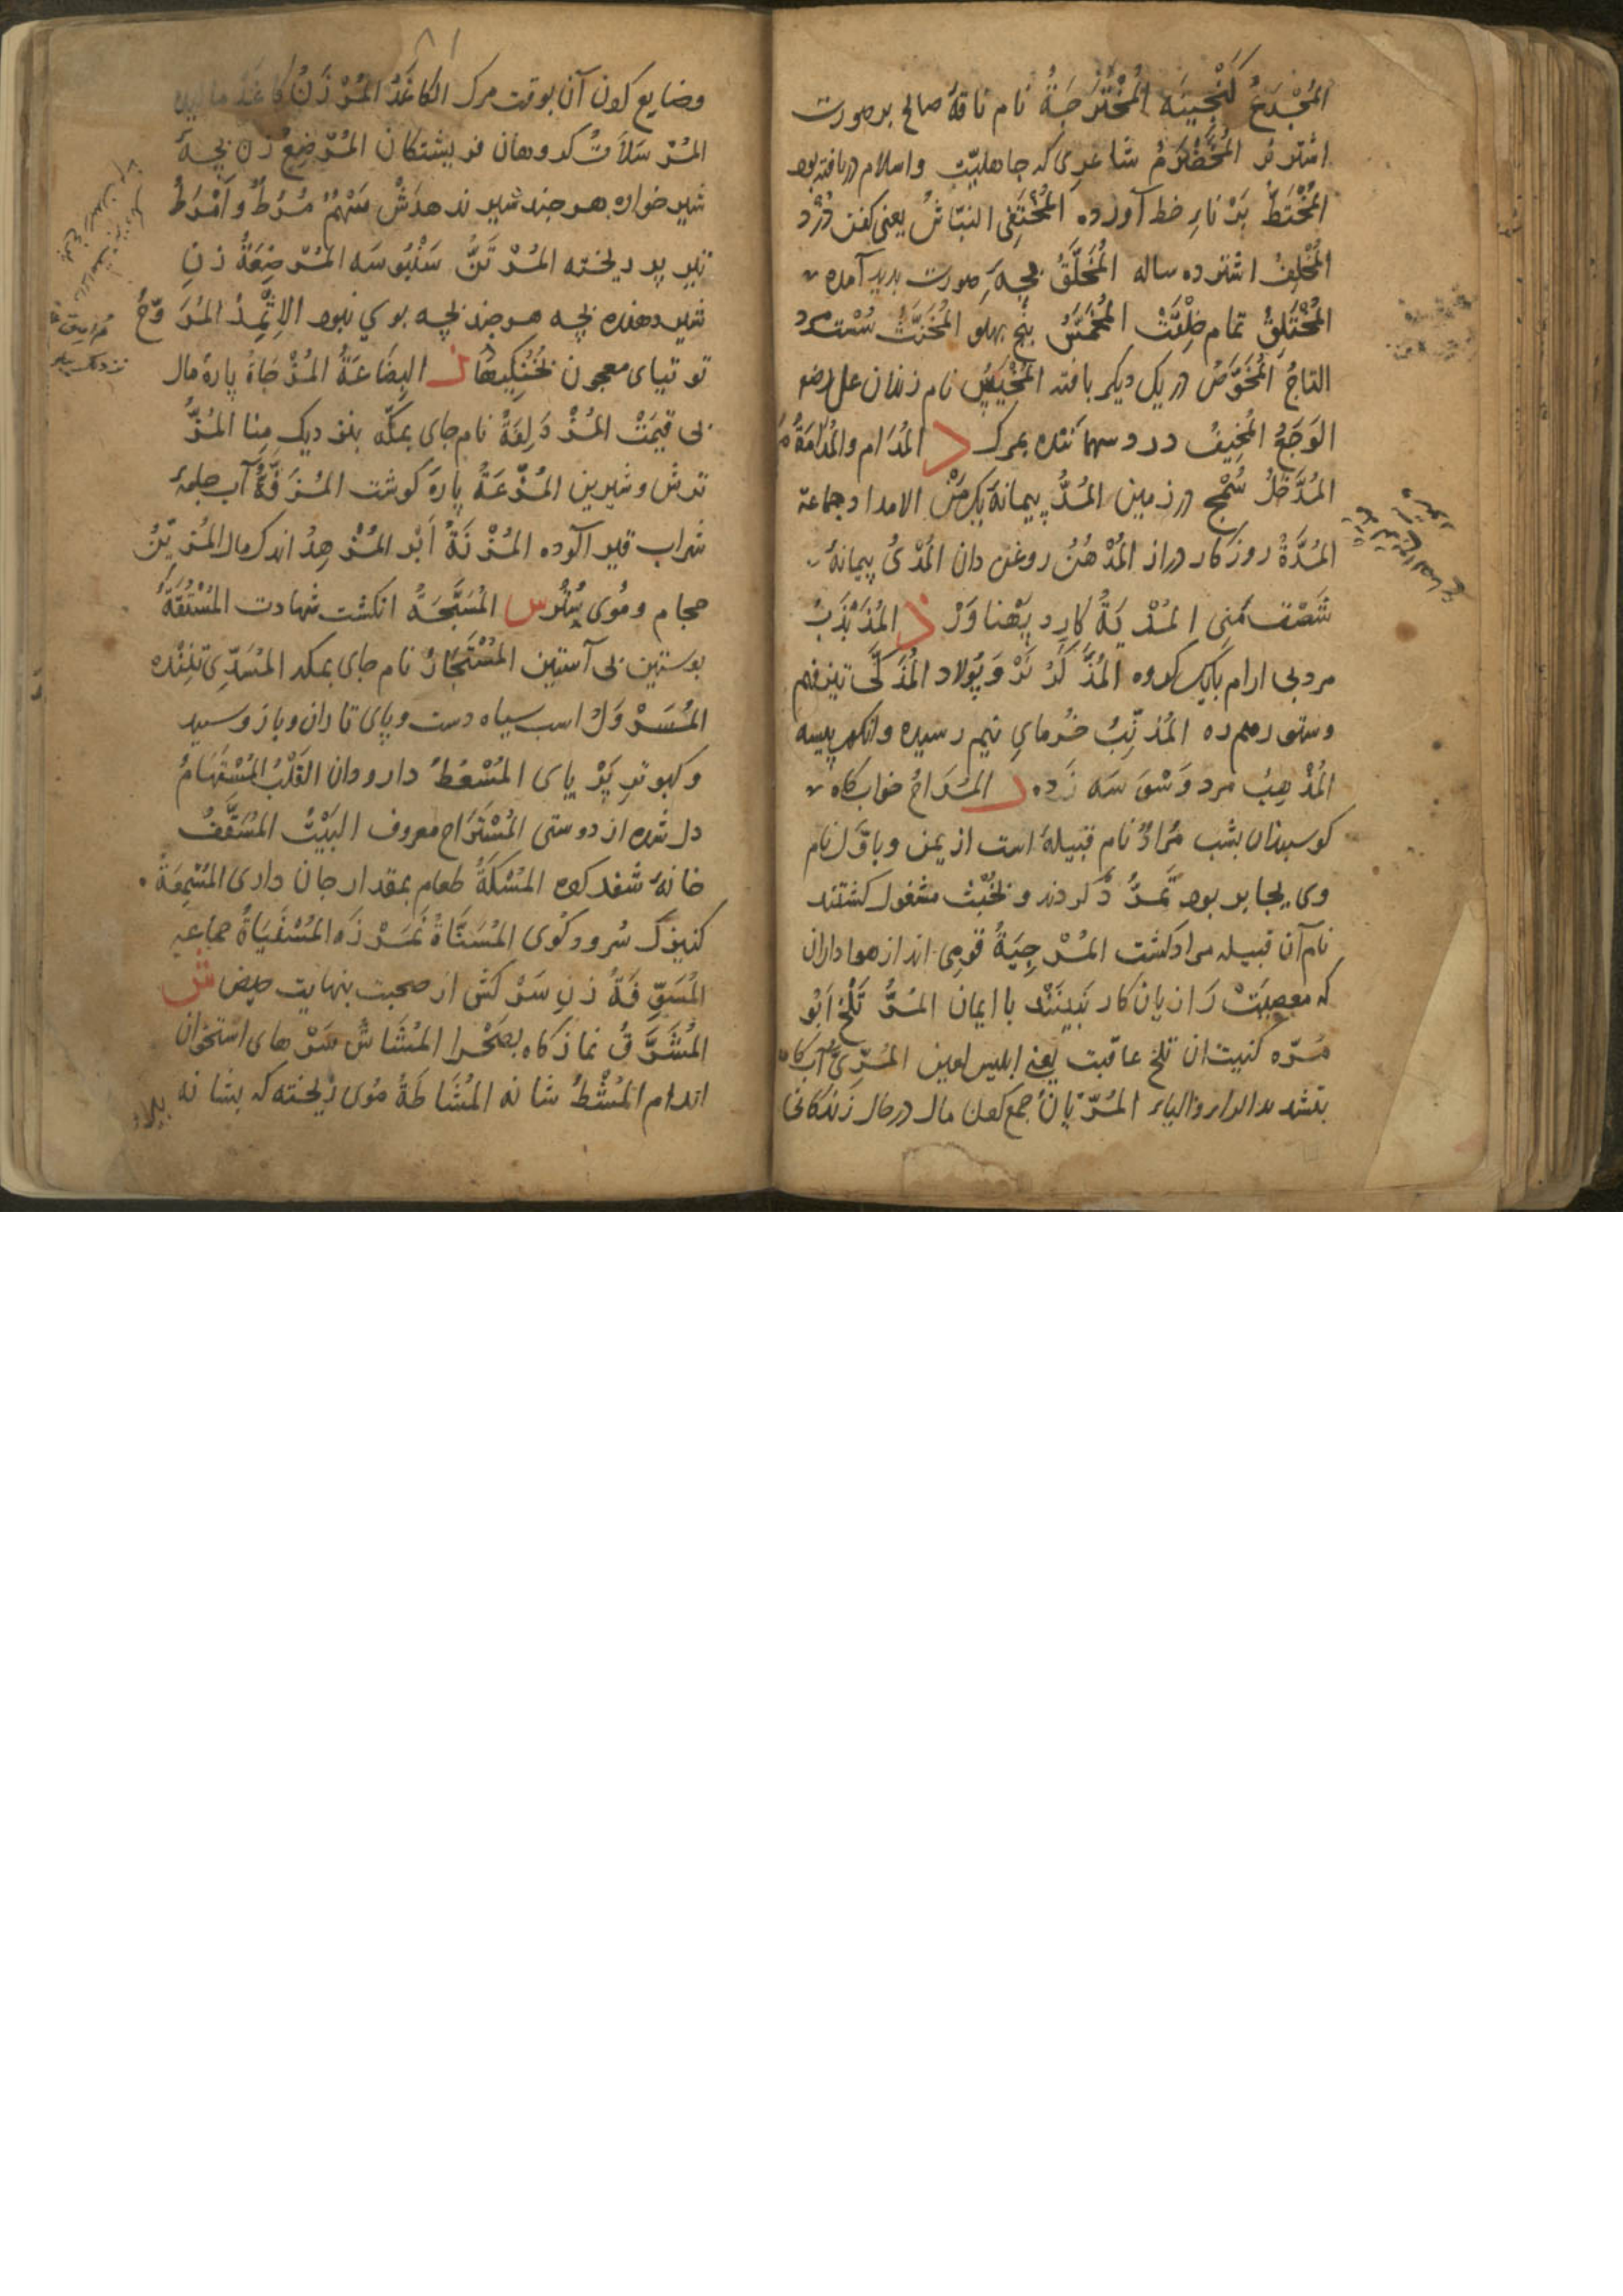 المُخْدَعُ گنْجِینَه المُخْتَرَجَةُ نام ناقهٔ صالح بر صورت
اشتر نر المُخَضْرَمُ شاعری که جاهلیّت و اسلام دریافته بود
المُخْتَطُّ بَرْنایِ خط آورده المُخْتَفِی النبّاشُ یعنی کفن دُزْد
المُخْلِفُ اشتر ده ساله المُخَلَّقُ بچهٔ صورت پدید آمده
المُخْتَلَقُ تمام خِلْقَتْ المُخَمَّسُ پنج پهلو المُخَنَّثُ سُسْت مرد
التاجُ المُخَوَّصُ در یک دیگر بافته المُخَیَّسُ نام زندان علی رضع
الوَجَعُ المُخِیفُ درد سهماننده بمرک د المُدَام والمُدَامَةُ
المُدَّخَلُ سُمْج در زمین المُدُّ پیمانهٔ یکمن الامداد جماعة
المُدَّةُ روزکار دراز المُدْهُنُ روغن دان المُدْیُ پیمانهٔ
شصت مَنی المُدْیَةُ کارد پَهْناوَرْ ذ المُذَبْذَبُ
مرد بی ارام بایک کروه المُذَکَّرُ نَرْ وَ پُولاد المُذَکَّی تیز فهم
وستور المُذَنِّبُ خُرمایِ نیم رسیده وانکور پیسه
المُذْهِبُ مرد وَسْوَسَه زَده ر المُرَاحُ خواب کاه
کوسپندان بشب مُرَادُ نام قبیلهٔ است از یمن وباوّل نام
وی یحابر بود تَمَرُّد کردند و بخُبْث مشغول کشتند
نام آن قبیله مراد کشت المُرْجِیَةُ قومی اند از هواداران
که معصیَتْ را زیان کار نَبینَنْد با ایمان المُرُّ تَلْخ اَبُو
مُرّه کنیت ان تلخ عاقبت یعنی ابلیس لعین المُرِّیُّ آب کامه
بتشدید الراء والیاء المُرَّیَانُ جمع کردن مال در حال زندکانی
۸۱
وضایع کردن آن بوقت مرک الکاغَذُ المُرْزَنُ کاغذ مالیده
المُرْسَلاَتُ کروهان فریشتکان المُرْضِعُ زن بچهٔ
شیر خواره هر چند شیر ندهدَشْ سَهْمٌ مُرُطٌ و اَمْرَطُ
تیر پر ریخته المُرْتَنُّ سَنْبُوسَه المُرْضِعَةُ زنِ
شیر دهنده بچه هر چند بچه بوی نبود الاِثْمِدُ المُرَوَّحُ
توتیای معجون بخُنُکیها ز البِضَاعَةُ المُزْجَاةُ پارهٔ مال
بی قیمَتْ المُزْدَلِفَةُ نام جای بمکّه بنزدیک مِنا المُزُّ
ترش وشیرین المُزْعَةُ پارهٔ کوشت المُزَفَّةُ آب جامهٔ
شراب قیر آلوده المُزْنَةُ اَبْر المُزْهِدُ اندک مال المُزَیِّنُ
حجام ومُوی سُتُر س المُسَبِّحَةُ انکشت شهادت المُسْتُقَةُ
پوستین بی آستین المُسْتَجَارُ نام جای بمکه المُسَدِّی تننده
المُسَرْوَلُ اسب سیاه دست وپای تا ران وباز وسپید
وکبوتر پَرْ پای المُسْعُطُ دارودان القَلْبُ المُسْتَهَامُ
دل شده از دوستی المُسْتَرَاحُ معروف البَیْتُ المُسَقَّفُ
خانهٔ شغد کرده المُسْکَةُ طعام بمقدار جان داری المُسْمِعَةُ
کنیزک سُرود کُوی المُسَنَّاةُ المُسْفَیَاةُ جماعیه
المُسَوِّفَةُ زنِ سَرْکش از صحبت ببهانهٔ حیض ش
المُشَرَّقُ نمازکاه بصَحْرا المُشَاشُ سَرْهای استخوان
اندام المُشْطُ شانه المُشَاطَةُ مُوی ریخته که بشانه